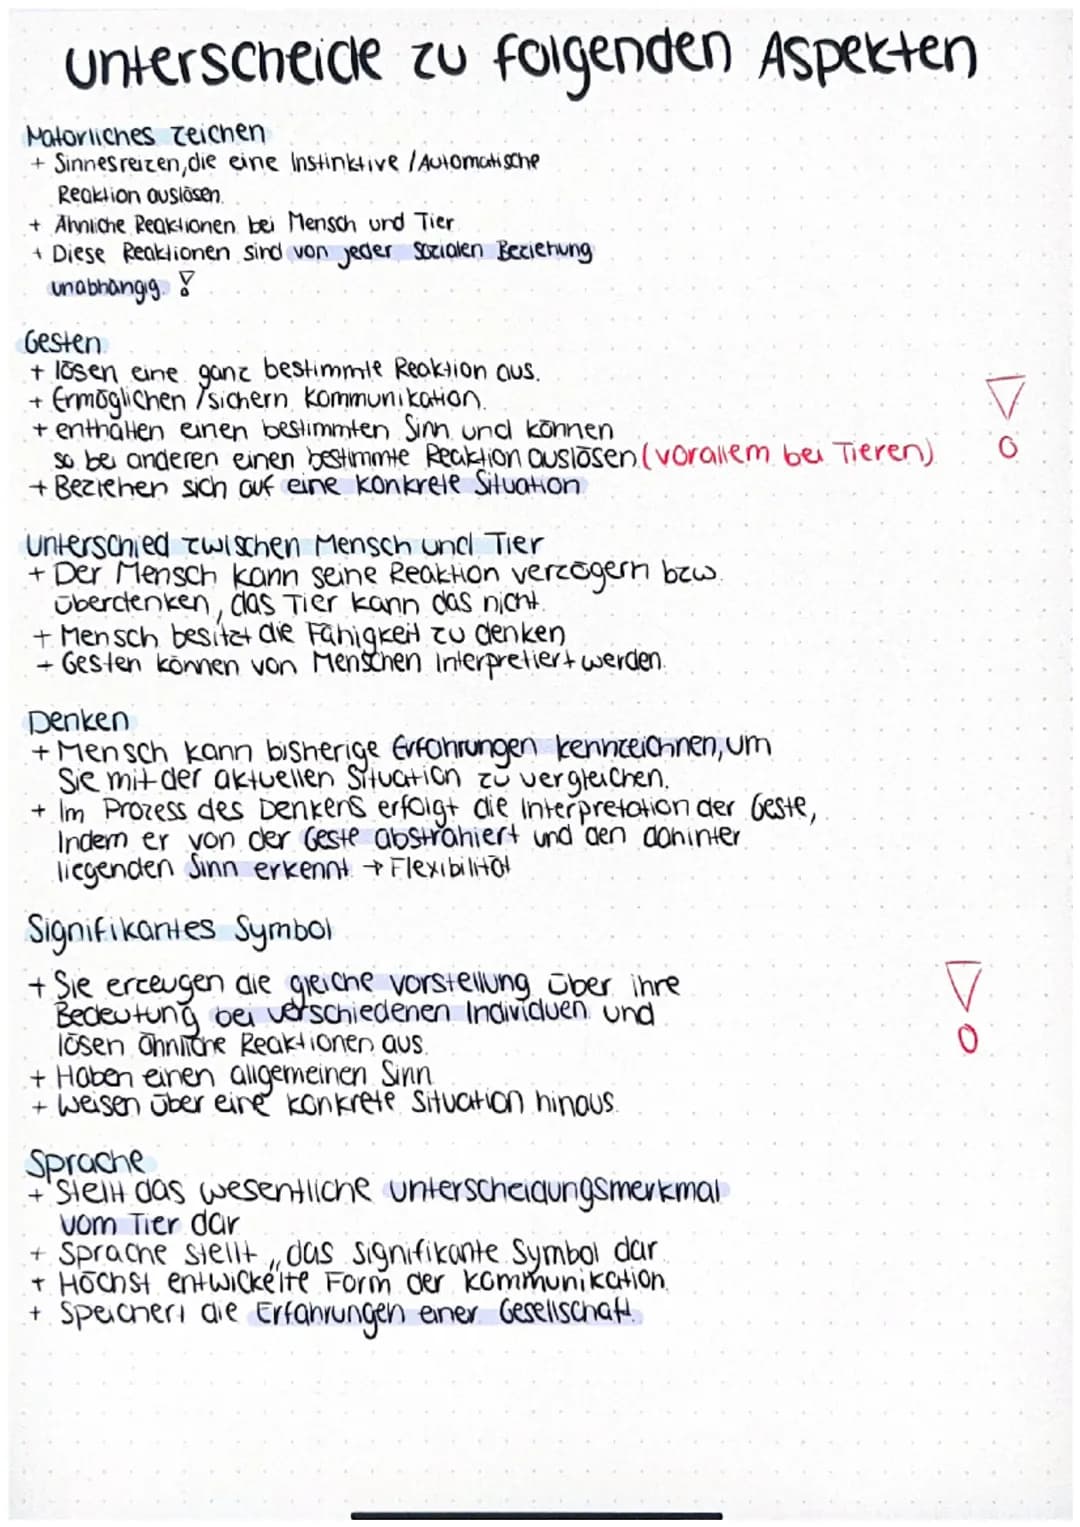 unterscheide zu folgenden Aspekten
Natürliches Zeichen
+ Sinnesreizen, die eine Instinktive / Automatische
Reaktion auslösen.
+ Ähnliche Reaktionen bei Mensch und Tier
+ Diese Reaktionen sind von jeder Sozialen Beziehung
unabhängig. !
Gesten
+ lösen eine ganz bestimmte Reaktion aus.
+ Ermöglichen / sichern Kommunikation.
+ enthalten einen bestimmten Sinn und können
so bei anderen einen bestimmte Reaktion auslösen. (vorallem bei Tieren) !
+ Beziehen sich auf eine konkrete Situation
Unterschied zwischen Mensch und Tier
+ Der Mensch kann seine Reaktion verzögern bzw.
überdenken, das Tier kann das nicht.
+ Mensch besitzt die Fähigkeit zu denken
+ Gesten können von Menschen Interpretiert werden.
Denken
+ Mensch kann bisherige Erfahrungen kennzeichnen, um
Sie mit der aktuellen Situation zu vergleichen.
+ Im Prozess des Denkens erfolgt die Interpretation der Geste,
Indem er von der Geste abstrahiert und den dahinter
liegenden Sinn erkennt. → Flexibilität
Signifikantes Symbol
+ Sie erzeugen die gleiche vorstellung über ihre
Bedeutung bei verschiedenen Individuen und
lösen ähnliche Reaktionen aus. !
+ Haben einen allgemeinen Sinn
+ Weisen über eine konkrete Situation hinaus.
Sprache
+ Stellt das wesentliche unterscheidungsmerkmal
vom Tier dar
+ Sprache stellt „das signifikante Symbol dar.
+ Höchst entwickelte Form der Kommunikation.
+ Speichert die Erfahrungen einer Gesellschaft.